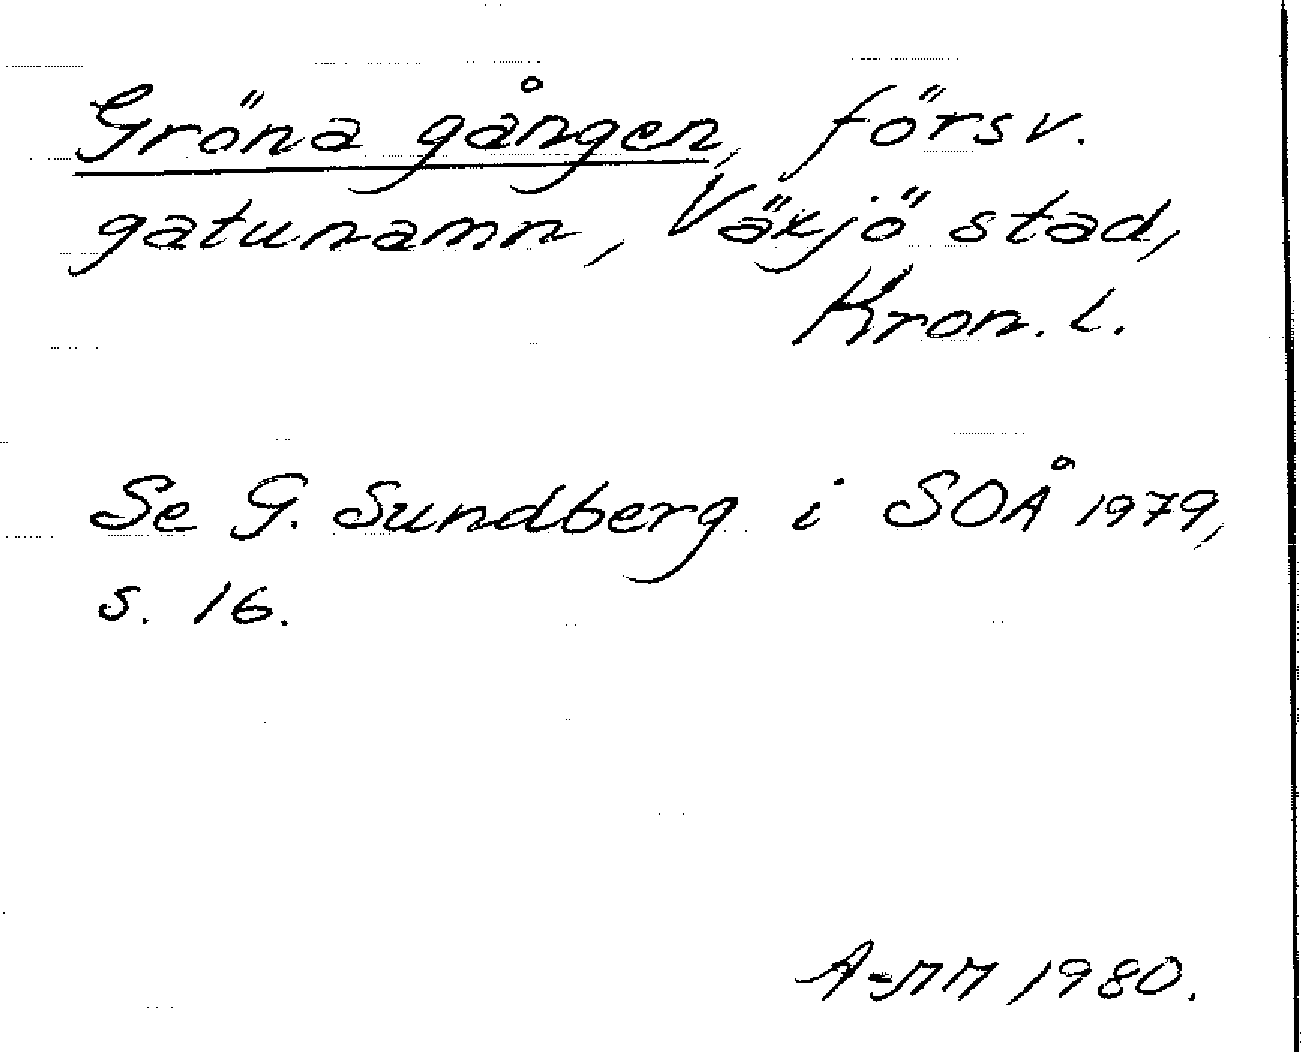 Gröna gången, försv.
gatunamn, Växjö stad,
Kron. l.
Se G. Sundberg i SOÅ 1979,
s. 16.
A-MM 1980.